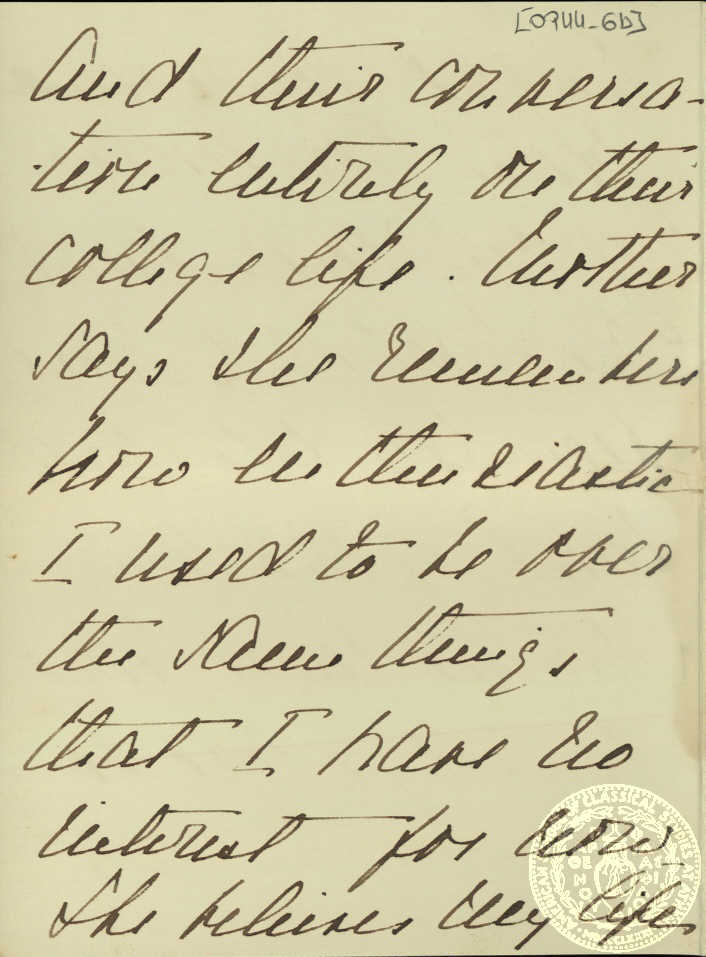 [0744-6b]
And their conversa-
-tion entirely on their
college life. Mother
says she remembers
how enthusiastic
I used to be over
the same things
that I have no
interest for now.
She believes my life
AMERICAN CLASSICAL STUDIES AT